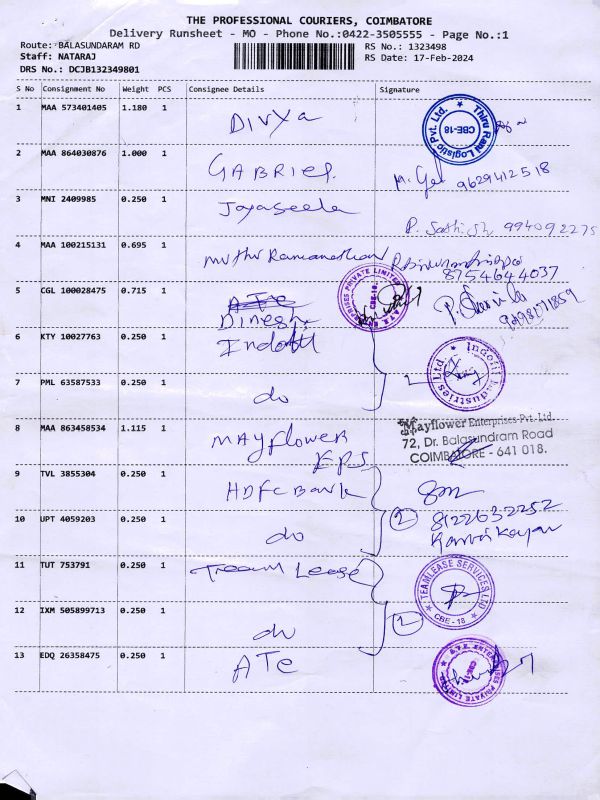 THE PROFESSIONAL COURIERS, COIMBATORE
Delivery Runsheet - MO - Phone No.:0422-3505555 - Page No.:1
Route: BALASUNDARAM RD RS No.: 1323498
Staff: NATARAJ RS Date: 17-Feb-2024
DRS No.: DCJB132349801
S No Consignment No Weight PCS Consignee Details Signature
1 MAA 573401405 1.180 1 Divya Thiru Rani Logistic Pvt. Ltd. CBE-18
2 MAA 864030876 1.000 1 GABRIEL 9629412518
3 MNI 2409985 0.250 1 Jayaseela P. Sathish 994092275
4 MAA 100215131 0.695 1 Muthu Ramanathan 8754644037
5 CGL 100028475 0.715 1 ATE
Dinesh
6 KTY 10027763 0.250 1 Indofil Indofil Industries Ltd.
7 PML 63587533 0.250 1 do 2
8 MAA 863458534 1.115 1 MAYflower Mayflower Enterprises Pvt. Ltd.
EPS 72, Dr. Balasundram Road
COIMBATORE - 641 018.
9 TVL 3855304 0.250 1 HDFC Bank
10 UPT 4059203 0.250 1 do 2 8122632252
11 TUT 753791 0.250 1 Team Lease TEAMLEASE SERVICES LTD CBE - 18
12 IXM 505899713 0.250 1 do
13 EDQ 26358475 0.250 1 ATE